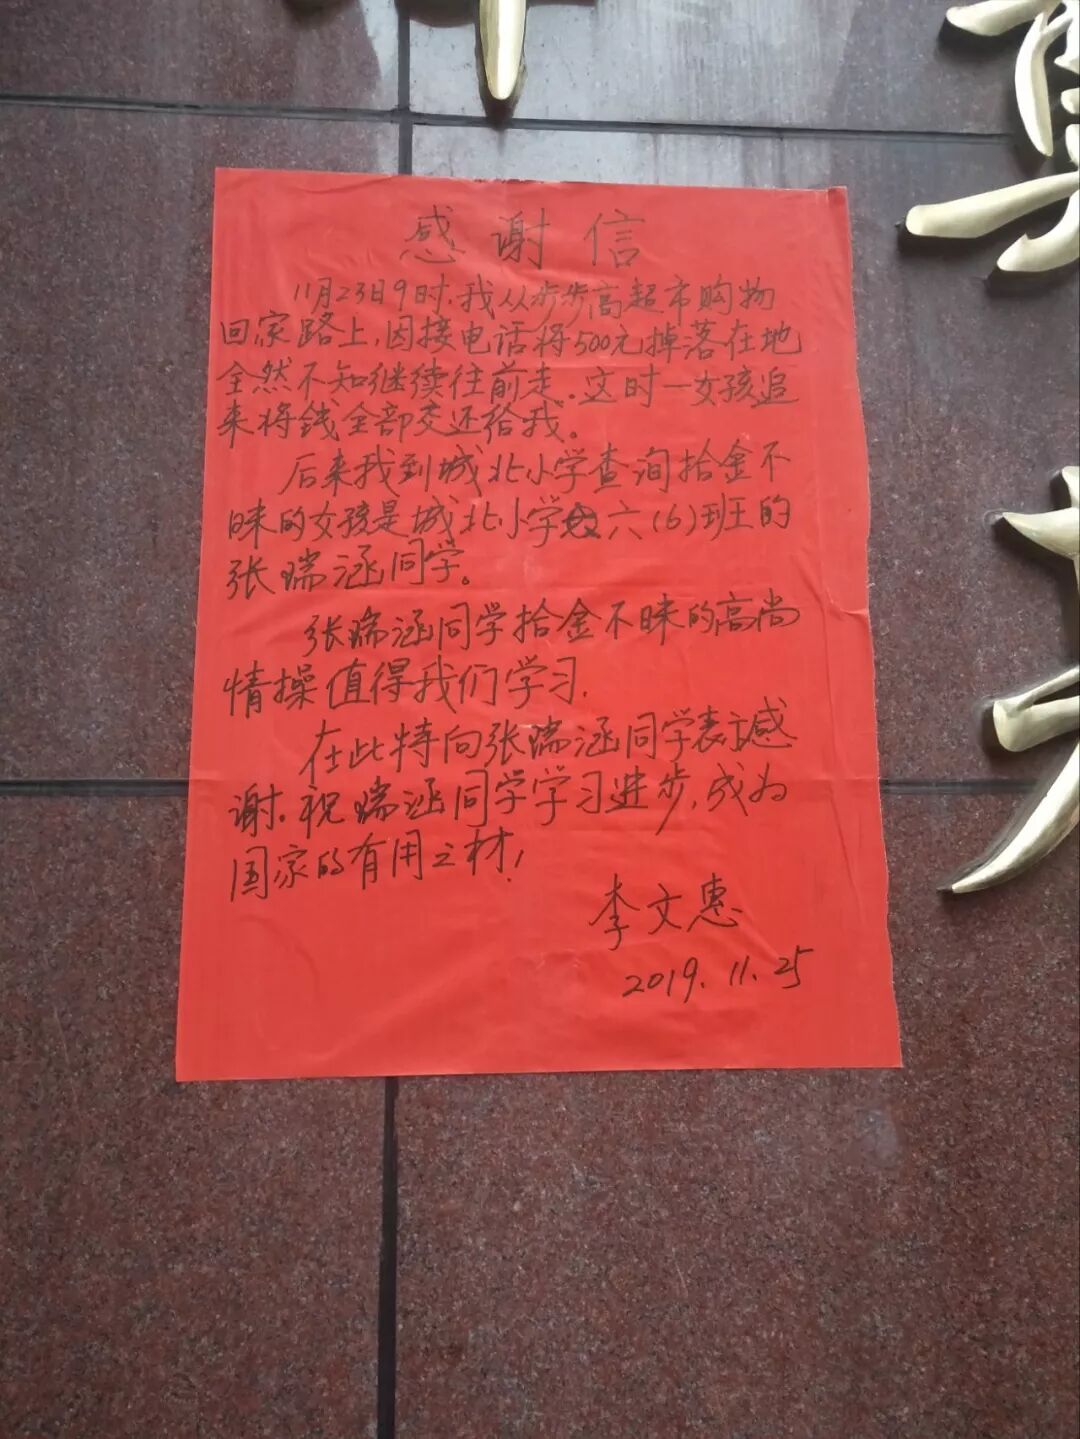 感谢信
11月23日9时,我从步步高超市购物
回家路上,因接电话将500元掉落在地
全然不知继续往前走。这时一女孩追
来将钱全部交还给我。
后来我到城北小学查询拾金不
昧的女孩是城北小学六(6)班的
张瑞涵同学。
张瑞涵同学拾金不昧的高尚
情操值得我们学习.
在此特向张瑞涵同学表示感
谢.祝瑞涵同学学习进步,成为
国家的有用之材!
李文惠
2019.11.25